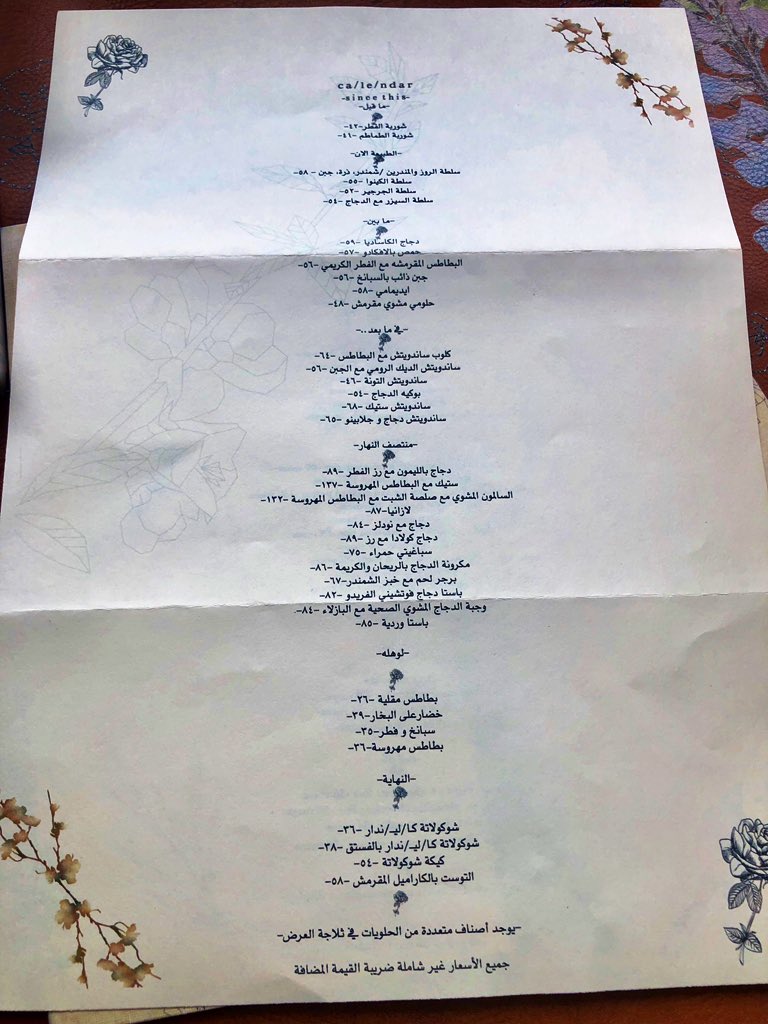 ca/le/ndar
-since this-
-ما قبل-
شوربة الفطر-٤٢-
شوربة الطماطم -٤١-
-الطبيعة الان-
سلطة الروز والمندرين /شمندر، ذرة، جبن -٥٨-
سلطة الكينوا -٥٥-
سلطة الجرجير -٥٢-
سلطة السيزر مع الدجاج -٥٤-
-ما بين-
دجاج الكاساديا -٥٩-
حمص بالافكادو -٥٧-
البطاطس المقرمشه مع الفطر الكريمي -٥٦-
جبن ذائب بالسبانخ -٥٦-
ايديمامي -٥٨-
حلومي مشوي مقرمش -٤٨-
-في ما بعد..-
كلوب ساندويتش مع البطاطس -٦٤-
ساندويتش الديك الرومي مع الجبن -٥٦-
ساندويتش التونة -٤٦-
بوكيه الدجاج -٥٤-
ساندويتش ستيك -٦٨-
ساندويتش دجاج و جلابينو -٦٥-
-منتصف النهار-
دجاج بالليمون مع رز الفطر -٨٩-
ستيك مع البطاطس المهروسة -١٣٧-
السالمون المشوي مع صلصة الشبت مع البطاطس المهروسة -١٣٢-
لازانيا-٨٧-
دجاج مع نودلز -٨٤-
دجاج كولادا مع رز -٨٩-
سباغيتي حمراء -٧٥-
مكرونة الدجاج بالريحان والكريمة -٨٦-
برجر لحم مع خبز الشمندر-٦٧-
باستا دجاج فوتشيني الفريدو -٨٢-
وجبة الدجاج المشوي الصحية مع البازلاء -٨٤-
باستا وردية -٨٥-
-لوهله-
بطاطس مقلية -٢٦-
خضارعلى البخار-٣٩-
سبانخ و فطر-٣٥-
بطاطس مهروسة -٣٦-
-النهاية-
شوكولاتة كـا/ليـ/ندار -٣٦-
شوكولاتة كـا/ليـ/ندار بالفستق -٣٨-
كيكة شوكولاتة -٥٤-
التوست بالكاراميل المقرمش -٥٨-
-يوجد أصناف متعددة من الحلويات في ثلاجة العرض-
جميع الأسعار غير شاملة ضريبة القيمة المضافة